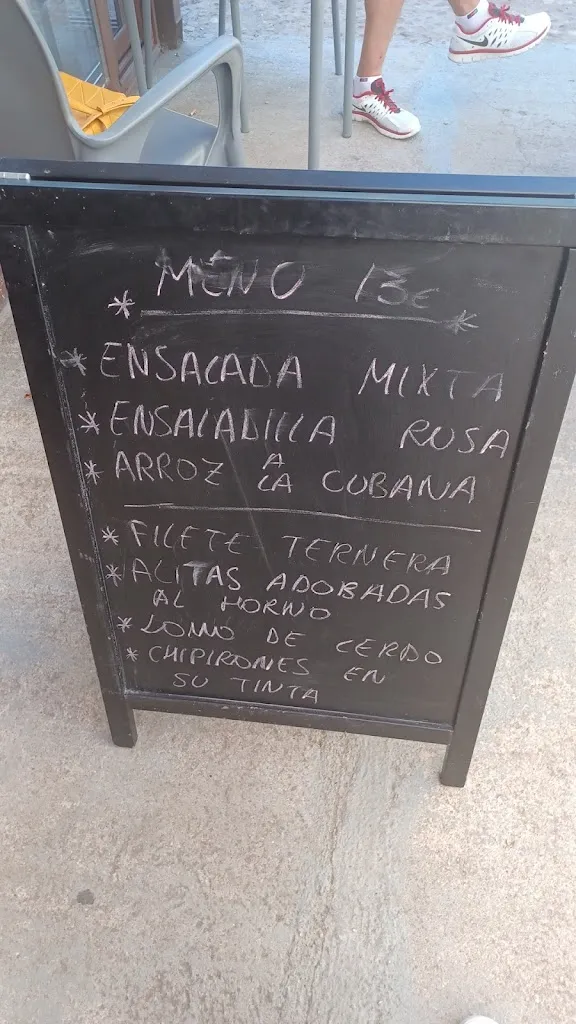 MENÚ 13€
* ENSALADA MIXTA
* ENSALADILLA RUSA
* ARROZ A LA CUBANA
* FILETE TERNERA
* ALITAS ADOBADAS
AL HORNO
* LOMO DE CERDO
* CHIPIRONES EN
SU TINTA